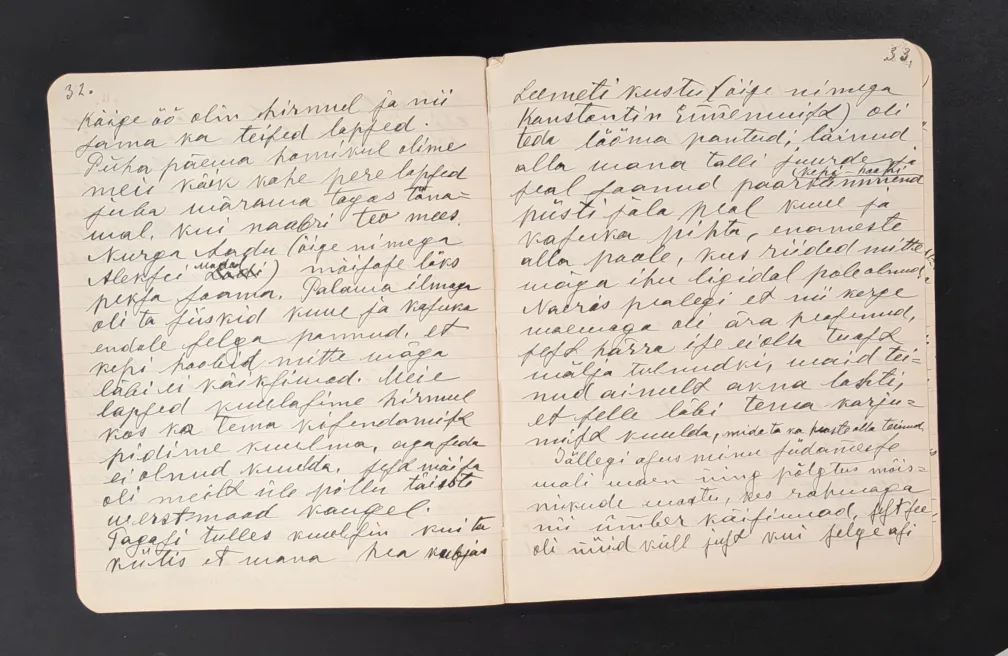 32.
Käige öö olin hirmul ja nii
sama ka teised lapsed.
Püha päewa homikul olime
meie käik kahe pere lapsed
juba wärawa tagas täna=
wal, kui naabri teo mees
Nurga Aadu (õige nimega
Aleksei) mõisase läks
peksa saama. Palawa ilmaga
oli ta siiskid kuue ja kasuka
endale selga pannud, et
kepi hoobid mitte wäga
läbi ei käiksiwad. Meie
lapsed kuulasime hirmul
kas ka tema kisendamist
pidime kuulma, aga seda
ei olnud kuulda, sest mõisa
oli meilt üle põllu täiste
werstmaad kaugel.
Tagasi tulles kuulsin kui ta
kütis et wana hea kubjas
33.
Leemeti Kustu (õige nimega
Konstantin) oli
teda lööma pantud; läinud
alla wana talli juurde ja
seal saanud paarkümmend
kepi-hoopi
püsti jala peal kuue ja
kasuka pihta, enameste
alla poole, kus riided mitte
wäga ihu ligidal pole olnud.
Naeris pealegi et nii kerge
waewaga oli ära peasenud,
sest härra ise ei olla toast
wälja tulnudki, waid tei=
nud ainult akna lahti,
et selle läbi tema karju=
mist kuulda, mida ta ka teinud.
Jällegi asus minu südamesse
wali waen ning põlgtus mõis=
nikude wastu, kes rahwaga
nii ümber käisiwad, sest see
oli nüüd küll just kui selge asi